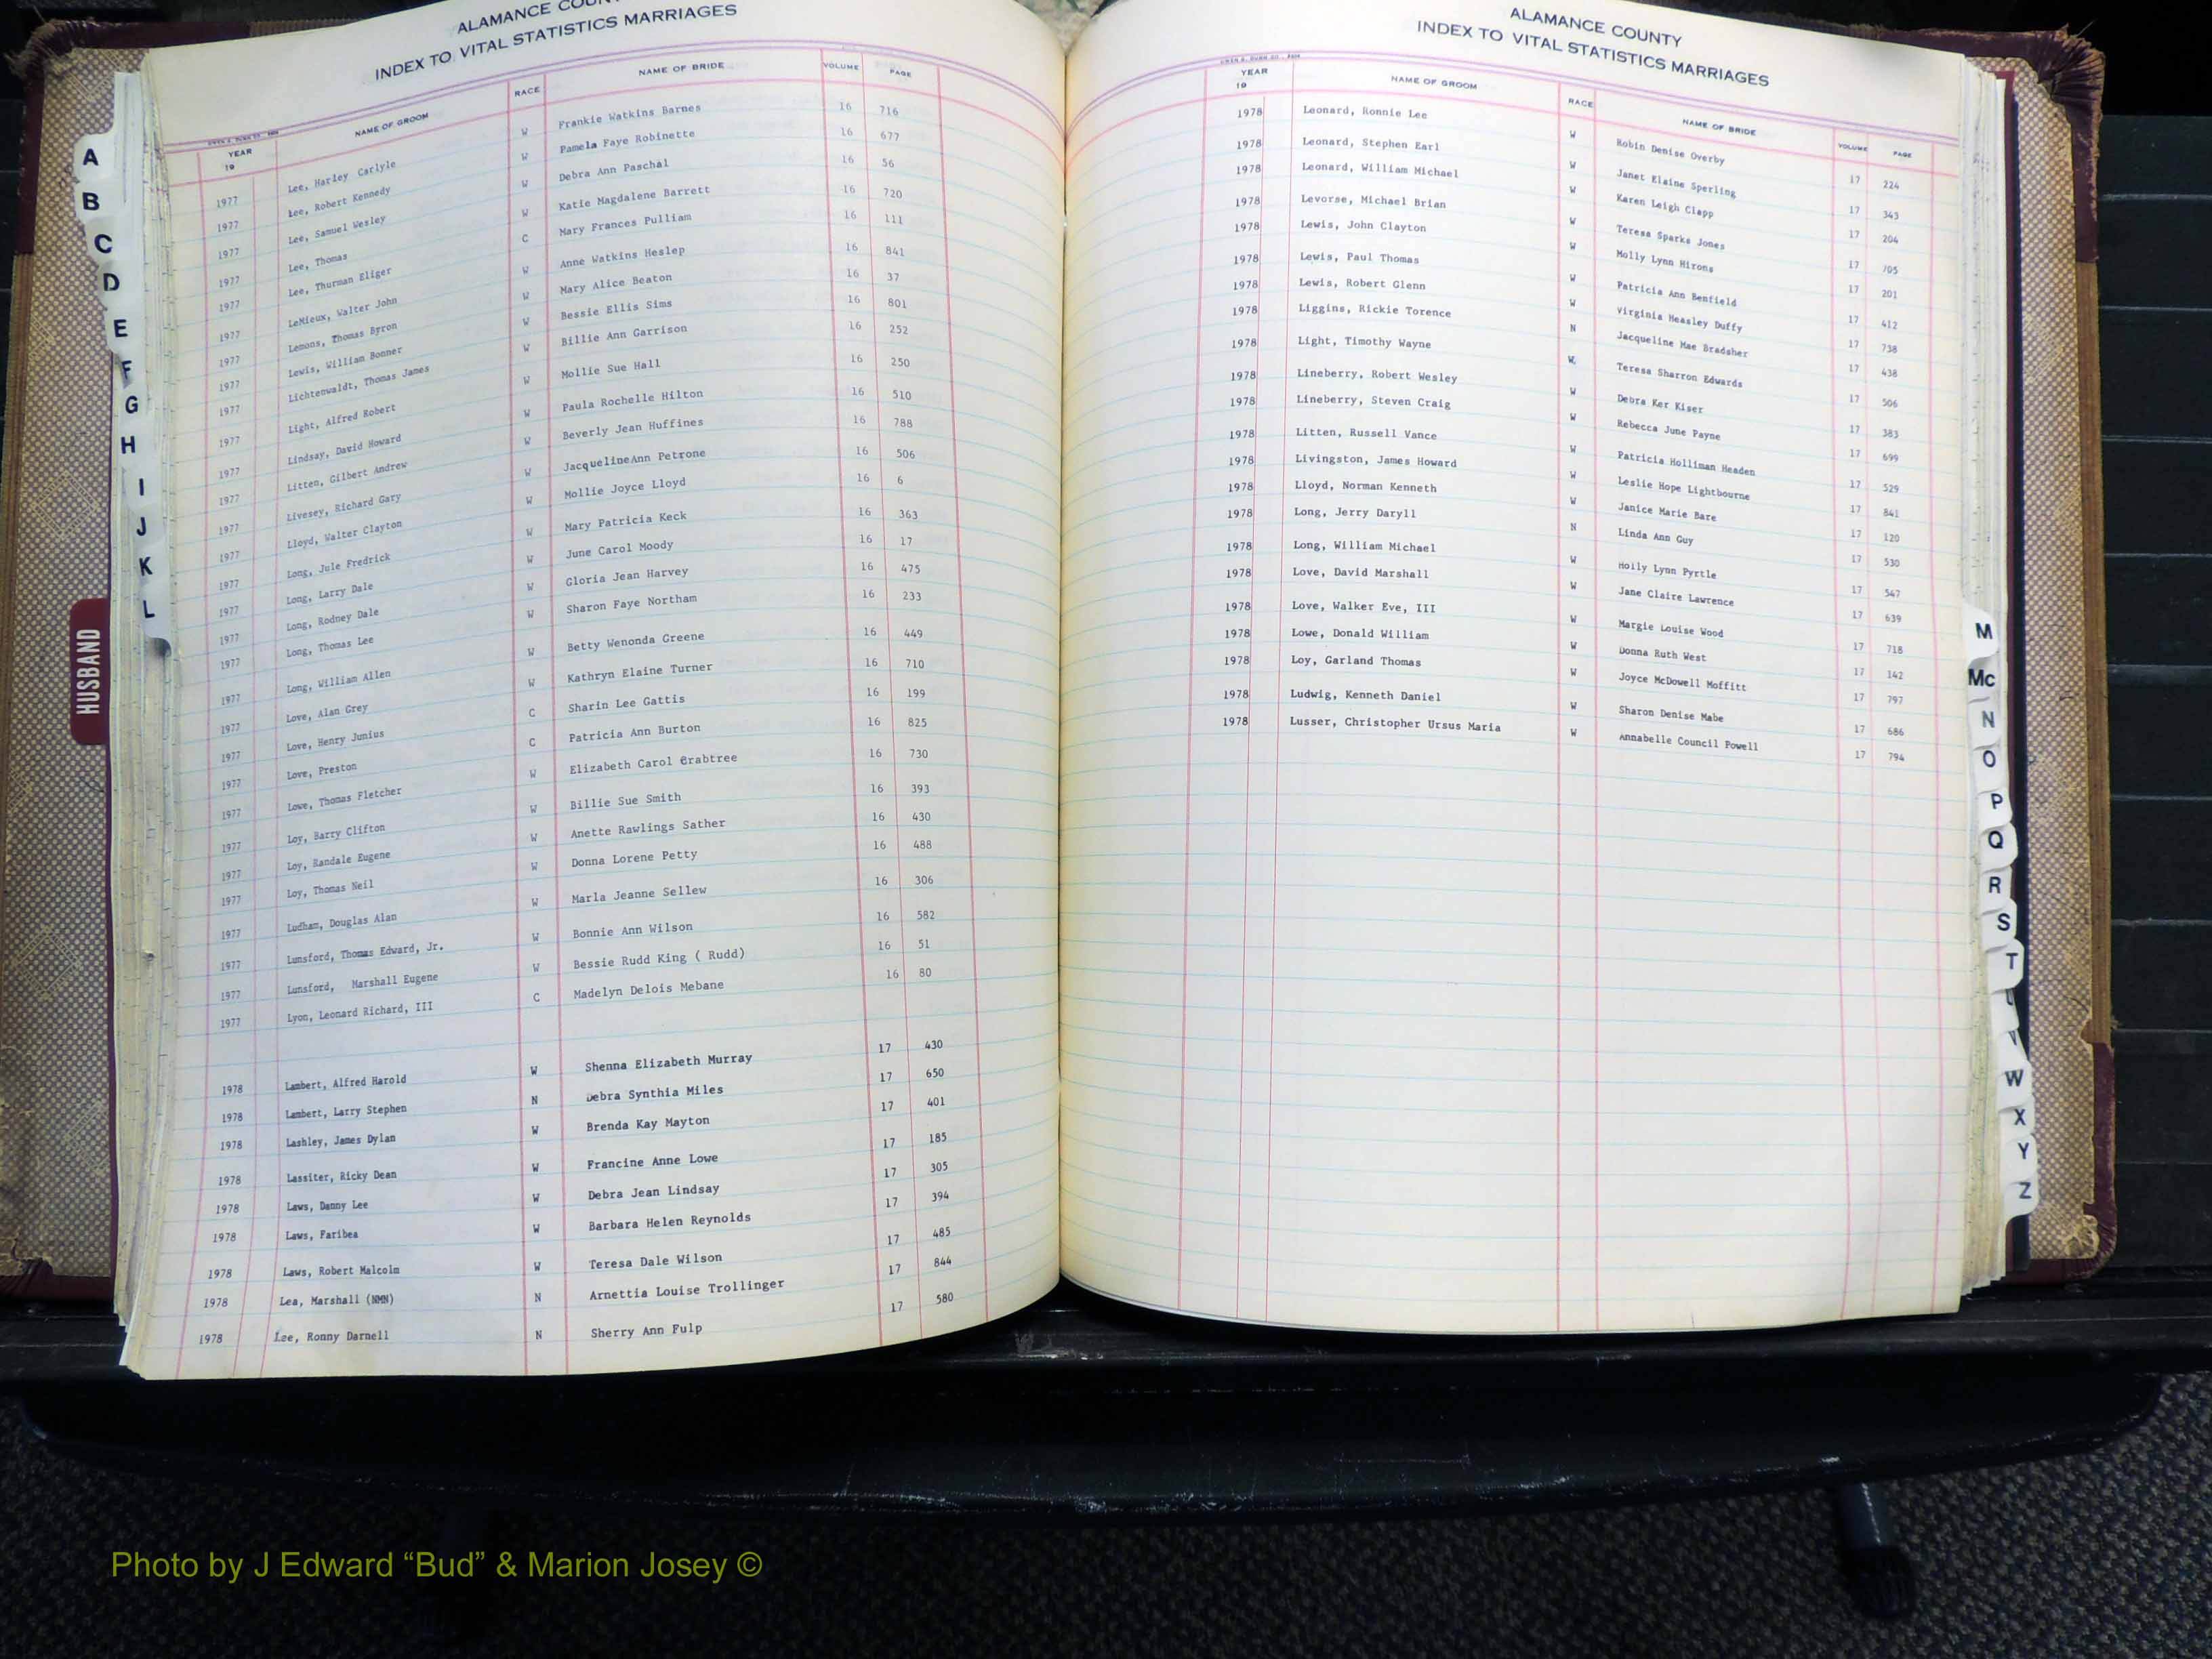 ALAMANCE COUN
INDEX TO VITAL STATISTICS MARRIAGES
YEAR 19 NAME OF GROOM RACE NAME OF BRIDE VOLUME PAGE
1977 Lee, Harley Carlyle W Frankie Watkins Barnes 16 716
1977 Lee, Robert Kennedy W Pamela Faye Robinette 16 677
1977 Lee, Samuel Wesley W Debra Ann Paschal 16 56
1977 Lee, Thomas W Katie Magdalene Barrett 16 720
1977 Lee, Thurman Eliger C Mary Frances Pulliam 16 111
1977 LeMieux, Walter John W Anne Watkins Heslep 16 841
1977 Lemons, Thomas Byron W Mary Alice Beaton 16 37
1977 Lewis, William Bonner W Bessie Ellis Sims 16 801
1977 Lichtenwaldt, Thomas James W Billie Ann Garrison 16 252
1977 Light, Alfred Robert W Mollie Sue Hall 16 250
1977 Lindsay, David Howard W Paula Rochelle Hilton 16 510
1977 Litten, Gilbert Andrew W Beverly Jean Huffines 16 788
1977 Livesey, Richard Gary W JacquelineAnn Petrone 16 506
1977 Lloyd, Walter Clayton W Mollie Joyce Lloyd 16 6
1977 Long, Jule Fredrick W Mary Patricia Keck 16 363
1977 Long, Larry Dale W June Carol Moody 16 17
1977 Long, Rodney Dale W Gloria Jean Harvey 16 475
1977 Long, Thomas Lee W Sharon Faye Northam 16 233
1977 Long, William Allen W Betty Wenonda Greene 16 449
1977 Love, Alan Grey W Kathryn Elaine Turner 16 710
1977 Love, Henry Junius C Sharin Lee Gattis 16 199
1977 Love, Preston C Patricia Ann Burton 16 825
1977 Lowe, Thomas Fletcher W Elizabeth Carol Crabtree 16 730
1977 Loy, Barry Clifton W Billie Sue Smith 16 393
1977 Loy, Randale Eugene W Anette Rawlings Sather 16 430
1977 Loy, Thomas Neil W Donna Lorene Petty 16 488
1977 Ludham, Douglas Alan W Marla Jeanne Sellew 16 306
1977 Lunsford, Thomas Edward, Jr. W Bonnie Ann Wilson 16 582
1977 Lunsford, Marshall Eugene W Bessie Rudd King ( Rudd) 16 51
1977 Lyon, Leonard Richard, III C Madelyn Delois Mebane 16 80
1978 Lambert, Alfred Harold W Shenna Elizabeth Murray 17 430
1978 Lambert, Larry Stephen N Debra Synthia Miles 17 650
1978 Lashley, James Dylan W Brenda Kay Mayton 17 401
1978 Lassiter, Ricky Dean W Francine Anne Lowe 17 185
1978 Laws, Danny Lee W Debra Jean Lindsay 17 305
1978 Laws, Faribea W Barbara Helen Reynolds 17 394
1978 Laws, Robert Malcolm W Teresa Dale Wilson 17 485
1978 Lea, Marshall (NMN) N Arnettia Louise Trollinger 17 844
1978 Lee, Ronny Darnell N Sherry Ann Fulp 17 580
A
B
C
D
E
F
G
H
I
J
K
L
HUSBAND
ALAMANCE COUNTY
INDEX TO VITAL STATISTICS MARRIAGES
YEAR 19 NAME OF GROOM RACE NAME OF BRIDE VOLUME PAGE
1978 Leonard, Ronnie Lee W Robin Denise Overby 17 224
1978 Leonard, Stephen Earl W Janet Elaine Sperling 17 343
1978 Leonard, William Michael W Karen Leigh Clapp 17 204
1978 Levorse, Michael Brian W Teresa Sparks Jones 17 705
1978 Lewis, John Clayton W Molly Lynn Hirons 17 201
1978 Lewis, Paul Thomas W Patricia Ann Benfield 17 412
1978 Lewis, Robert Glenn W Virginia Heasley Duffy 17 738
1978 Liggins, Rickie Torence N Jacqueline Mae Bradsher 17 438
1978 Light, Timothy Wayne W. Teresa Sharron Edwards 17 506
1978 Lineberry, Robert Wesley W Debra Ker Kiser 17 383
1978 Lineberry, Steven Craig W Rebecca June Payne 17 699
1978 Litten, Russell Vance W Patricia Holliman Headen 17 529
1978 Livingston, James Howard W Leslie Hope Lightbourne 17 841
1978 Lloyd, Norman Kenneth W Janice Marie Bare 17 120
1978 Long, Jerry Daryll N Linda Ann Guy 17 530
1978 Long, William Michael W Holly Lynn Pyrtle 17 547
1978 Love, David Marshall W Jane Claire Lawrence 17 639
1978 Love, Walker Eve, III W Margie Louise Wood 17 718
1978 Lowe, Donald William W Donna Ruth West 17 142
1978 Loy, Garland Thomas W Joyce McDowell Moffitt 17 797
1978 Ludwig, Kenneth Daniel W Sharon Denise Mabe 17 686
1978 Lusser, Christopher Ursus Maria W Annabelle Council Powell 17 794
M
Mc
N
O
P
Q
R
S
T
U
V
W
X
Y
Z
Photo by J Edward “Bud” & Marion Josey ©